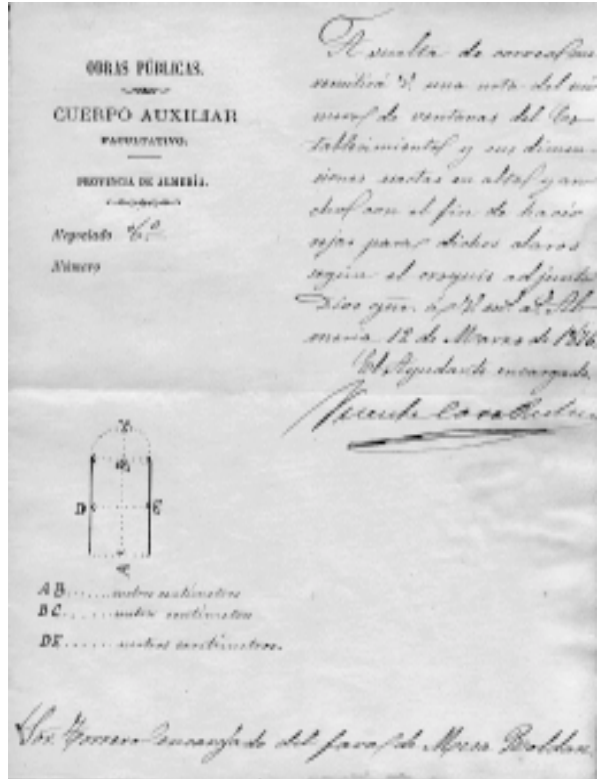 OBRAS PÚBLICAS.
CUERPO AUXILIAR
FACULTATIVO.
PROVINCIA DE ALMERÍA.
Negociado 6.º
Número
A vuelta de correo se
remitirá V. una nota del nú
mero de ventanas del Es-
tablecimiento y sus dimen-
siones en alto y an
cho con el fin de hacer
rejas para dichos claros
según el croquis adjunto
Dios gue. a V. m.s a.s Al-
meria 12 de Marzo de 1876
El Ayudante encargado
Vicente
B
D E
A
AB...... metros centimetros
BC...... metros centimetros
DE...... metros centimetros.
Sor. Torrero encargado del faro de Mesa Roldan.